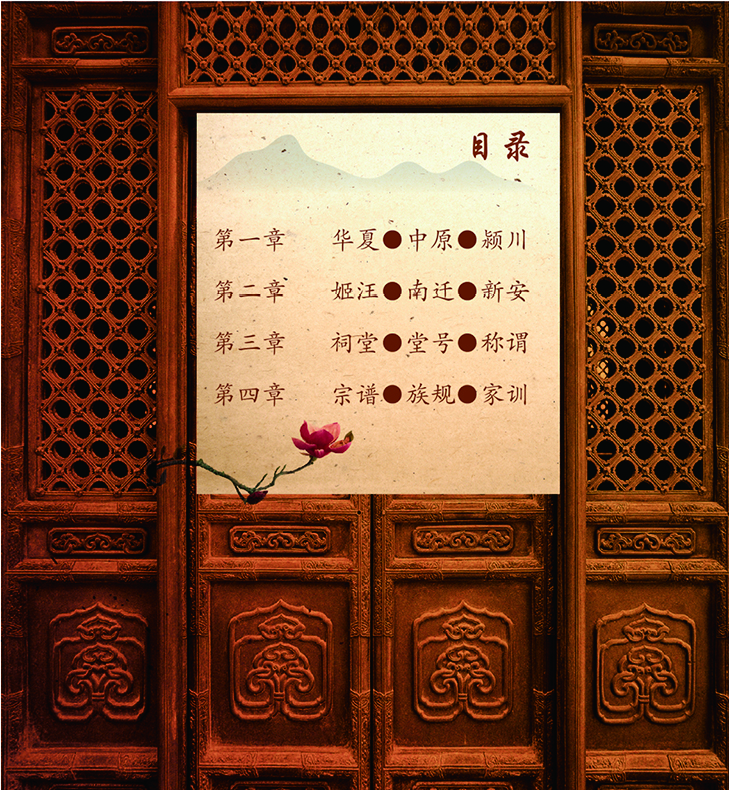 目录
第一章 华夏●中原●颍川
第二章 姬汪●南迁●新安
第三章 祠堂●堂号●称谓
第四章 宗谱●族规●家训